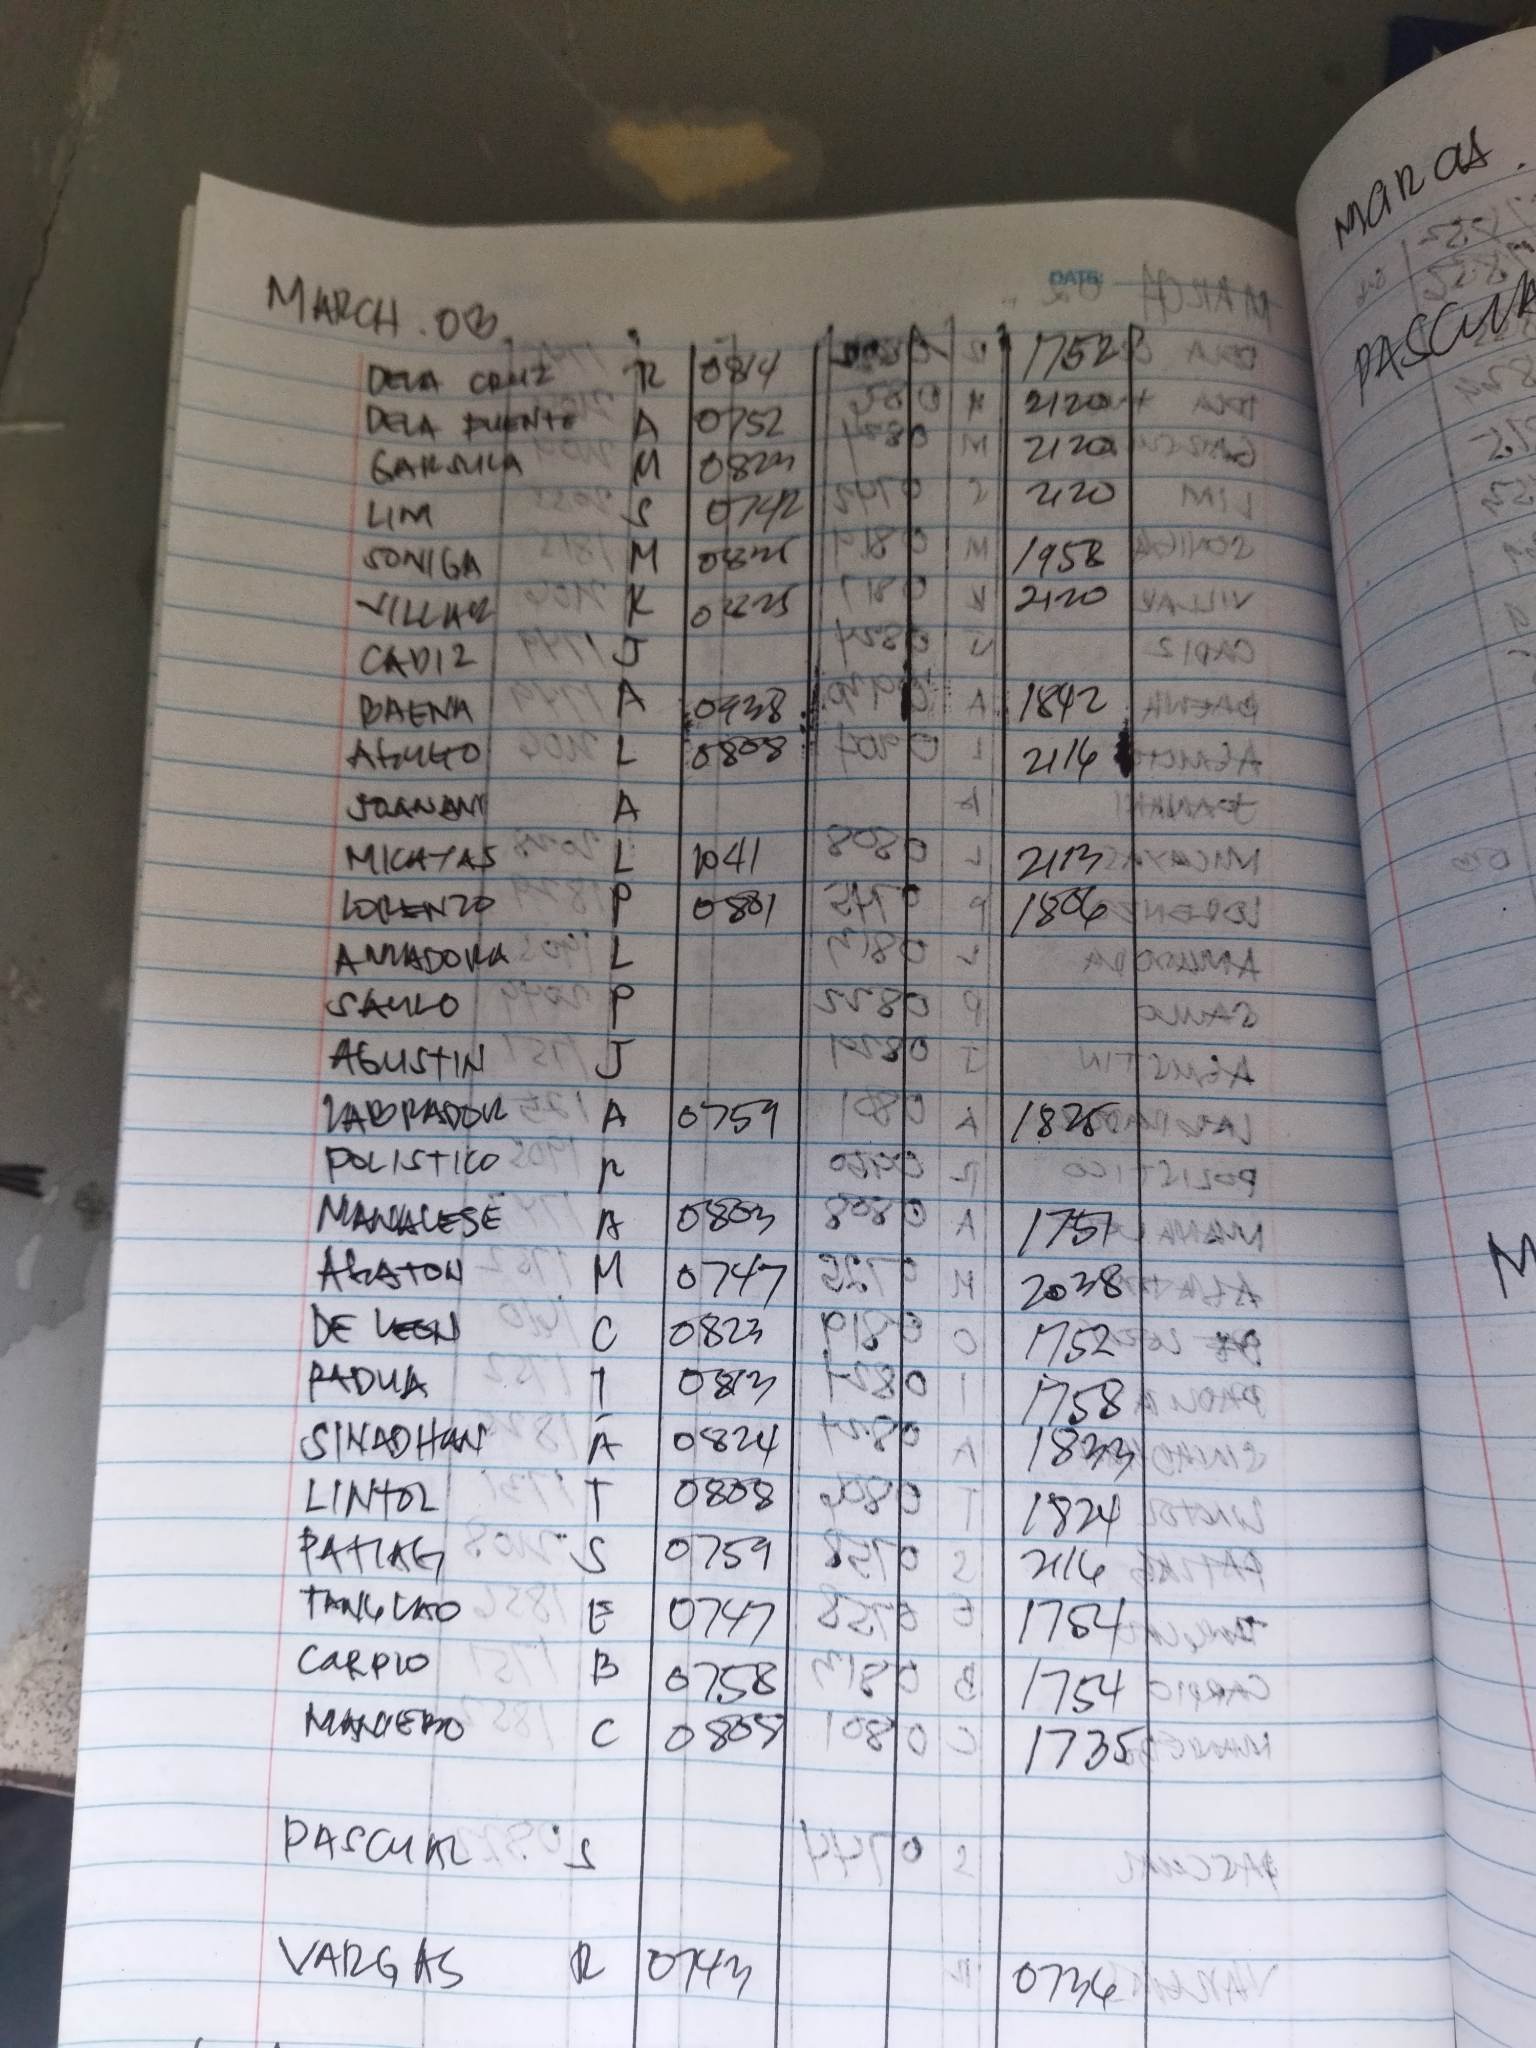 DATE:
MARCH . 03
DELA CRUZ R 0814 1752
DELA PUENTE A 0752 2120
M 0823 2120
LIM S 0742 2120
SONIGA M 1958
VILLAR K 2120
CADIZ J
BAENA A 0938 1842
L 0808 2116
A
MICAYAS L 1041 2113
LORENZO P 0801 1806
L
SAULO P
AGUSTIN J
LABRADOR A 0759 1825
POLISTICO R
MANALESE A 0803 1751
AGATON M 0747 2038
DE LEON C 0823 1752
PADUA I 0813 1758
SINADHAN A 0824 1833
LINTOL T 0808 1824
PATIAG S 0759 2116
TANGLAO E 0747 1754
CARPIO B 0758 1754
MANIEGO C 0805 1735
PASCUAL S
VARGAS R 0743 0736
PASCUA
M